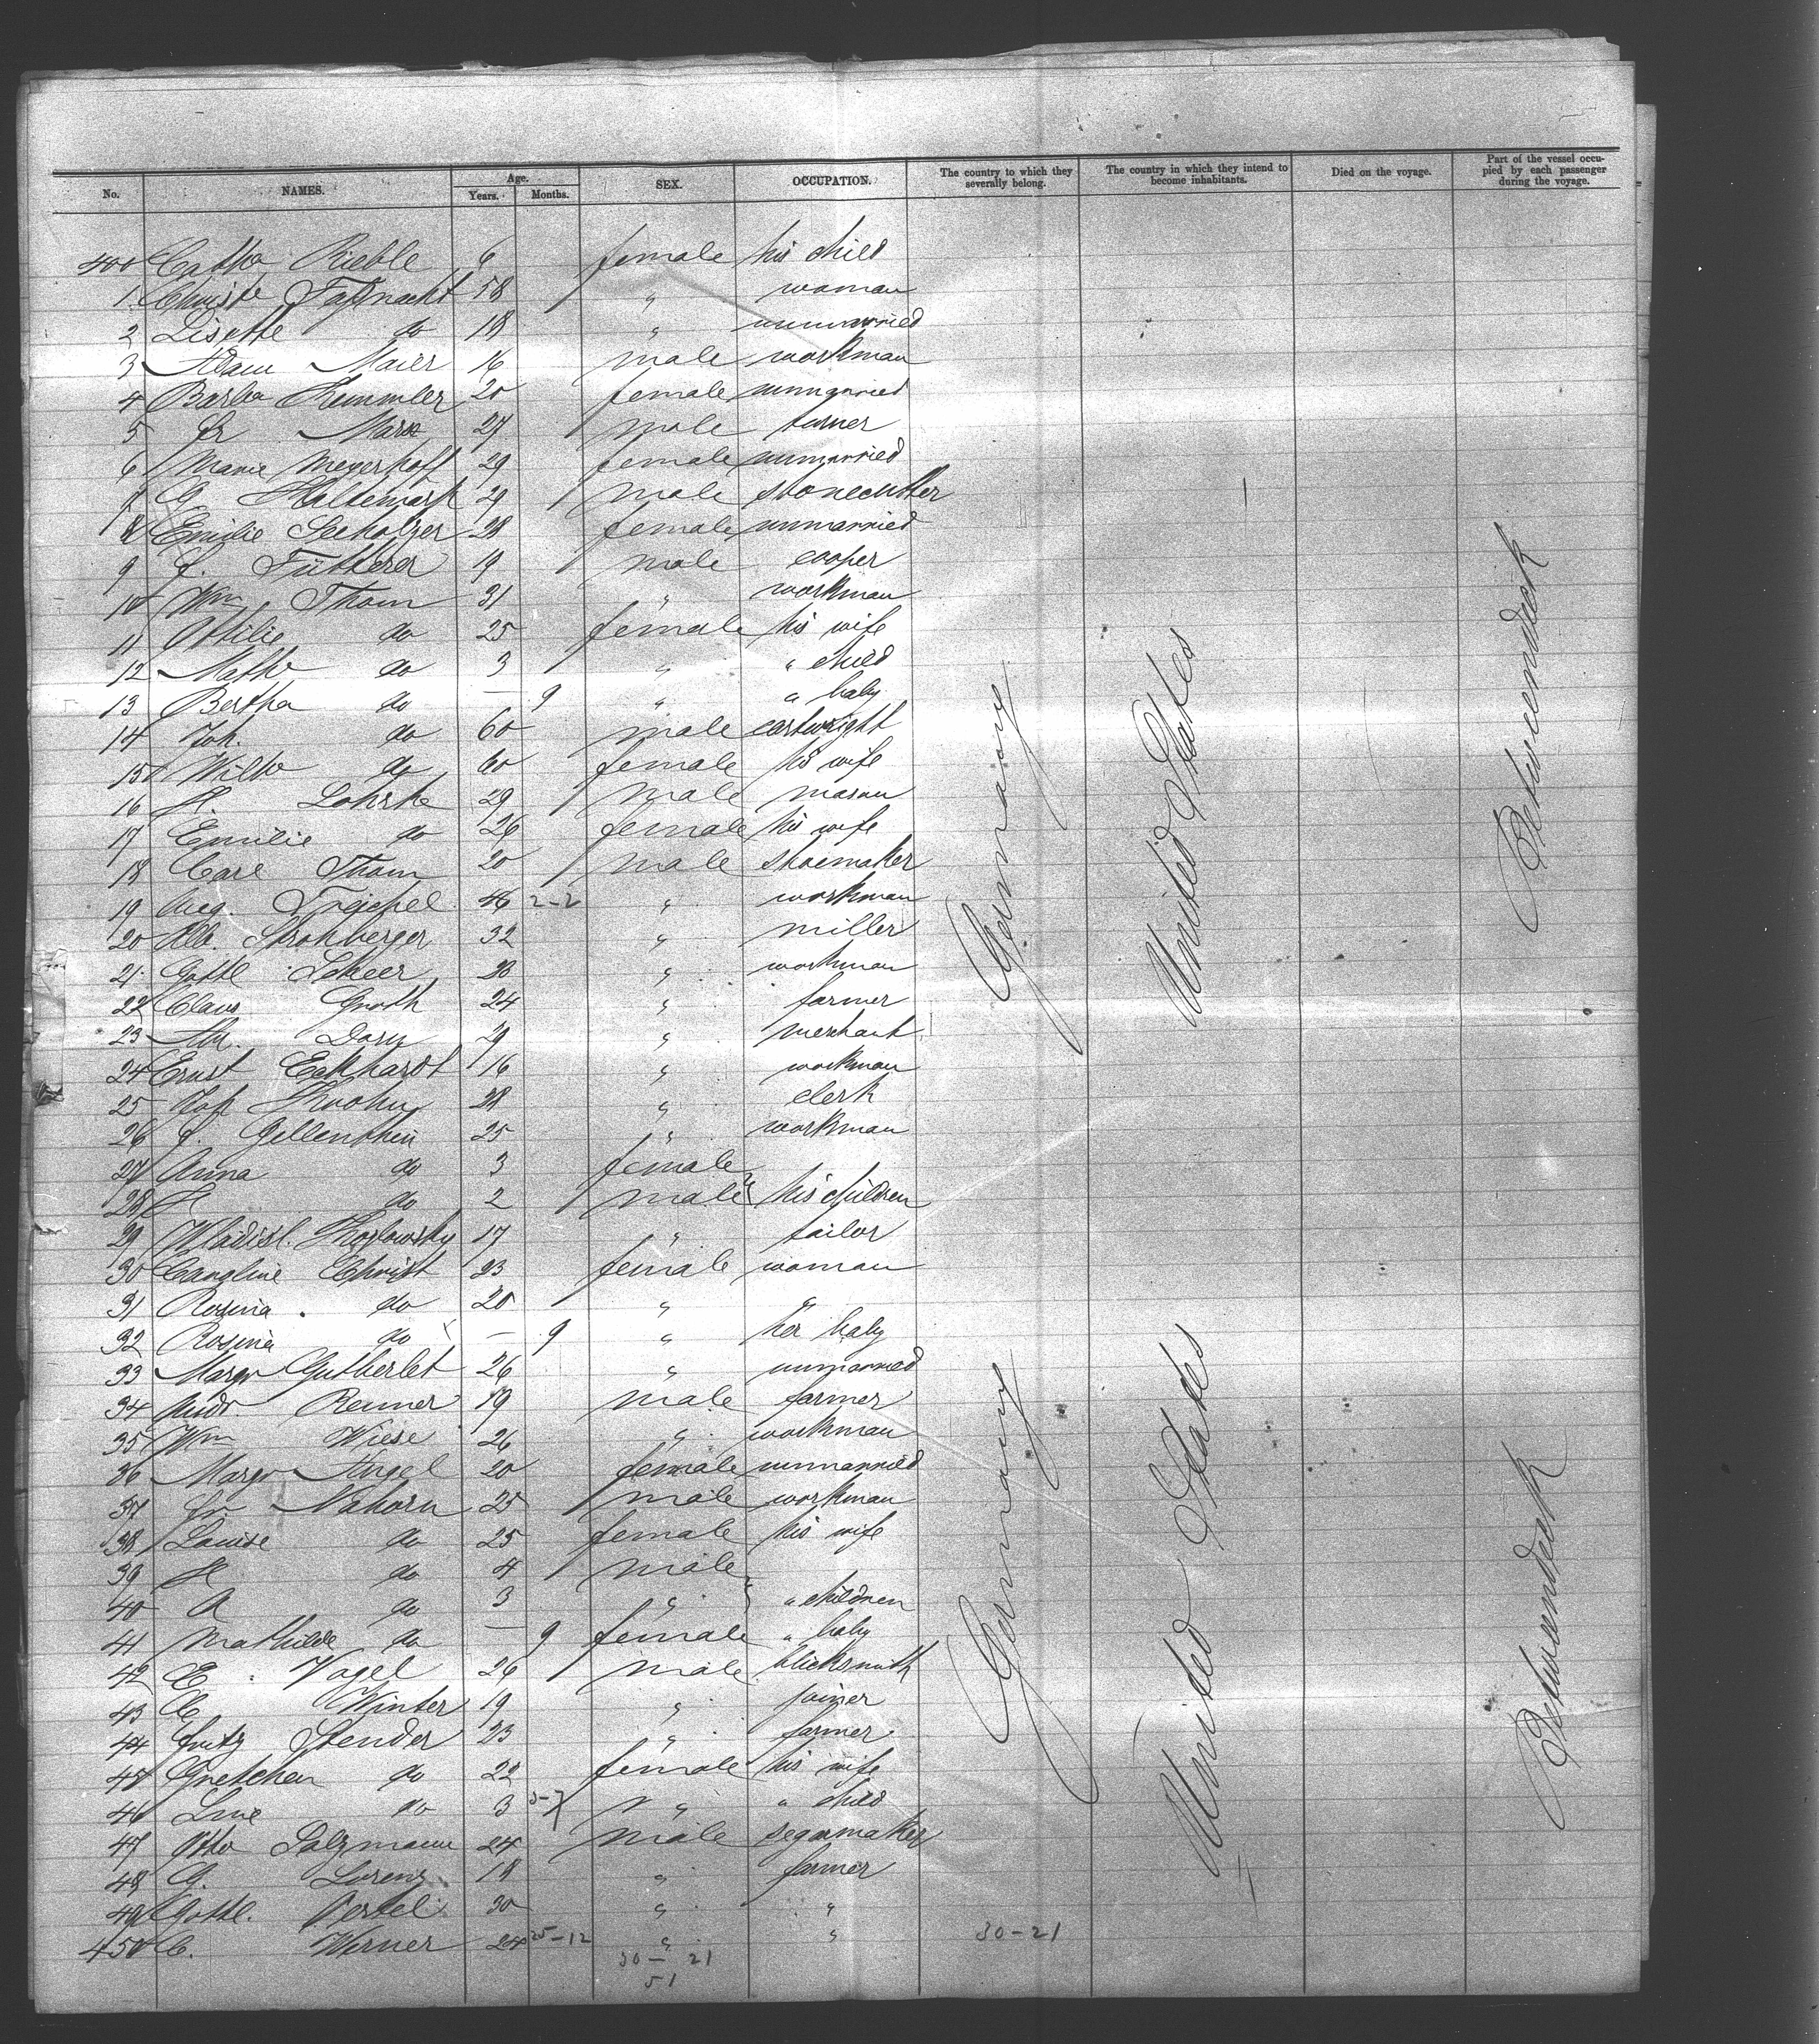 No. NAMES. Age. Years. Months. SEX. OCCUPATION. The country to which they severally belong. The country in which they intend to become inhabitants. Died on the voyage. Part of the vessel occupied by each passenger during the voyage.
400 Cath Rieble 6 female his child
1 Christe Faßnacht 58 " woman
2 Lisette do 18 " unmarried
3 Adam Maier 16 male workman
4 Barba Kemmler 20 female unmarried
5 Fr Marx 27 male turner
6 Marie Meyerhoff 29 female unmarried
7 G 29 male stonecutter
8 Emilie Seeholzer 28 female unmarried
9 F. Fütterer 19 male cooper
10 Wm Thom 31 " workman
11 Ottilie do 25 female his wife
12 Math do 3 " " child
13 Bertha do — 9 " " baby
14 Joh. do 60 male cartwright
15 Wilh do 60 female his wife
16 H. Lohrke 29 male mason
17 Emilie do 26 female his wife
18 Carl Thom 20 male shoemaker
19 Aug. Treichel 46 2-2 " workman
20 Alb. Strohberger 32 " miller
21 Gottl Scheer 28 " workman
22 Claus Groth 24 " farmer
23 Dorn 29 " merchant
24 Ernst Eckhardt 16 " workman
25 28 " clerk
26 F. Gellenthin 25 " workman
27 Anna do 3 female
28 H do 2 male his children
29 Wladisl. Kozlowsky 17 " tailor
30 Caroline Christ 23 female woman
31 Rosina do 20 " "
32 Rosina do — 9 " her baby
33 Margr Gutberlet 26 " unmarried
34 Andr. Renner 19 male farmer
35 Wm Wiese 26 " workman
36 Margr Angel 20 female unmarried
37 Fr. Nahorn 25 male workman
38 Louise do 25 female his wife
39 H do 4 male
40 A do 3 " " children
41 Mathilde do — 9 female " baby
42 E. Vogel 26 male blicksmith
43 C Winter 19 " joiner
44 Fritz Stender 23 " farmer
45 Gretchen do 22 female his wife
46 Line do 3 5-7 " " child
47 Otto Salzmann 24 male segarmaker
48 G. Lorenz 18 " farmer
49 Gottl. Oertel 30 " "
450 C. Werner 24 25-12 " " 30-21
30 — 21
51
Germany
United States
Betweendeck
Germany
United States
Betweendeck